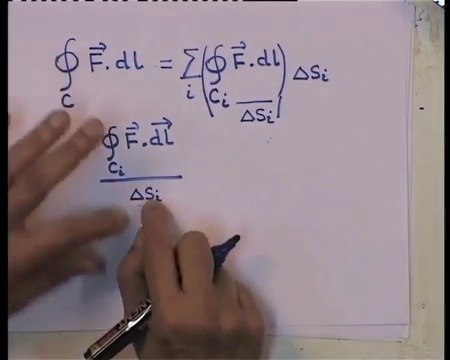 ∮_C F⃗ . dl = Σ_i ( ∮_{C_i} F⃗ . dl / ΔS_i ) ΔS_i
∮_{C_i} F⃗ . dl⃗ / ΔS_i